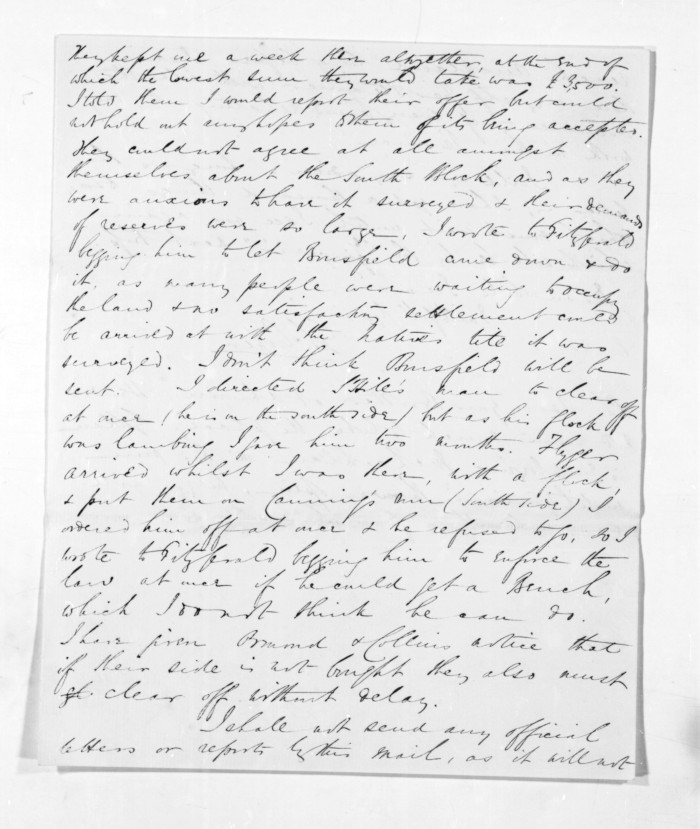 They kept me a week there altogether, at the end of
which the lowest sum they would take was £3,500.
I told them I would report their offer but could
not hold out any hopes to them of its being accepted.
They could not agree at all amongst
themselves about the South Block, and as they
were anxious to have it surveyed & their demands
of reserves were so large, I wrote to Fitzgerald
begging him to let Bousfield come down & do
it, as many people were waiting to occupy
the land & no satisfactory settlement could
be arrived at with the natives till it was
surveyed. I don't think Bousfield will be
sent. I directed man to clear off
at once (he is on the south side) but as his flock
was lambing I gave him two months. Flyger
arrived whilst I was there, with a flock,
& put them on Canning's run (South side) I
ordered him off at once & he refused to go, so I
wrote to Fitzgerald begging him to enforce the
law at once if he could get a Bench,
which I do not think he can do.
I have given Ormond & Collins notice that
if their side is not bought they also must
clear off without delay.
I shall not send any official
letters or reports by this mail, as it will not